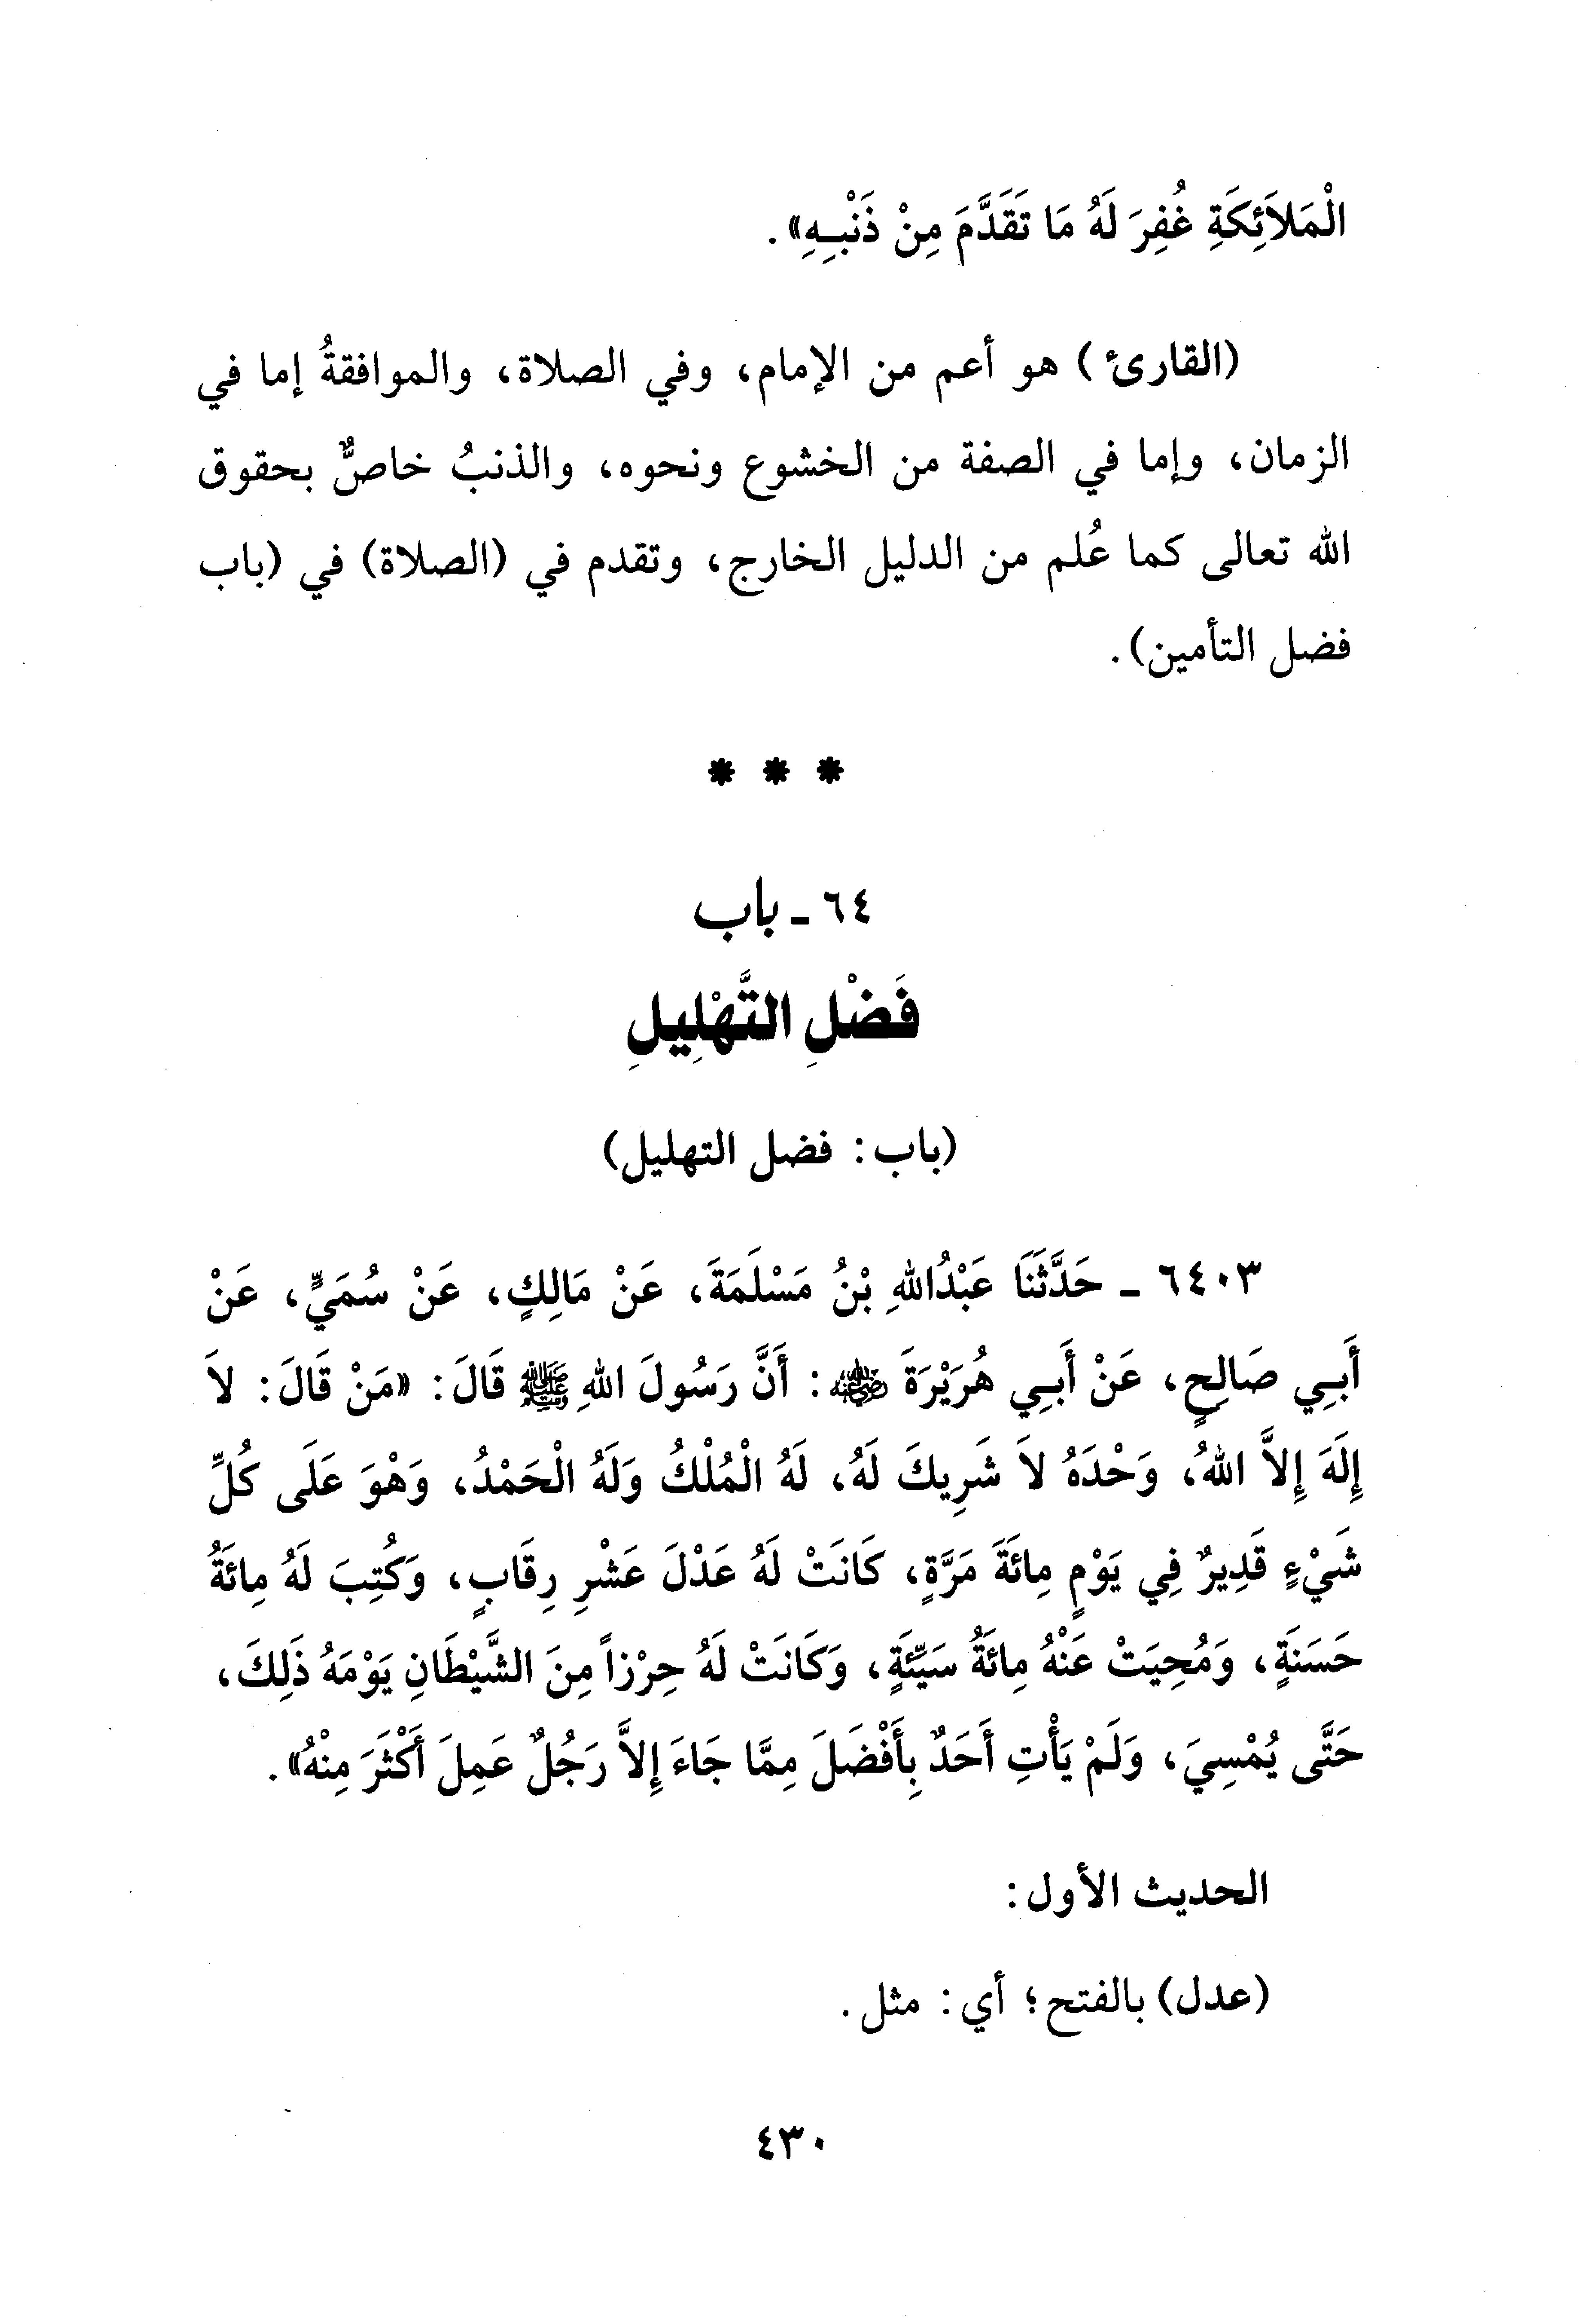 الْمَلاَئِكَةِ غُفِرَ لَهُ مَا تَقَدَّمَ مِنْ ذَنْبِهِ».
(القارئ) هو أعم من الإمام، وفي الصلاة، والموافقةُ إما في
الزمان، وإما في الصفة من الخشوع ونحوه، والذنبُ خاصٌّ بحقوق
الله تعالى كما عُلم من الدليل الخارج، وتقدم في (الصلاة) في (باب
فضل التأمين).
* * *
٦٤ - باب
فَضْلِ التَّهْلِيلِ
(باب: فضل التهليل)
٦٤٠٣ - حَدَّثَنَا عَبْدُاللهِ بْنُ مَسْلَمَةَ، عَنْ مَالِكٍ، عَنْ سُمَيٍّ، عَنْ
أَبِي صَالِحٍ، عَنْ أَبِي هُرَيْرَةَ رضي الله عنه: أَنَّ رَسُولَ اللهِ ﷺ قَالَ: «مَنْ قَالَ: لاَ
إِلَهَ إِلاَّ اللهُ، وَحْدَهُ لاَ شَرِيكَ لَهُ، لَهُ الْمُلْكُ وَلَهُ الْحَمْدُ، وَهْوَ عَلَى كُلِّ
شَيْءٍ قَدِيرٌ فِي يَوْمٍ مِائَةَ مَرَّةٍ، كَانَتْ لَهُ عَدْلَ عَشْرِ رِقَابٍ، وَكُتِبَ لَهُ مِائَةُ
حَسَنَةٍ، وَمُحِيَتْ عَنْهُ مِائَةُ سَيِّئَةٍ، وَكَانَتْ لَهُ حِرْزاً مِنَ الشَّيْطَانِ يَوْمَهُ ذَلِكَ،
حَتَّى يُمْسِيَ، وَلَمْ يَأْتِ أَحَدٌ بِأَفْضَلَ مِمَّا جَاءَ إِلاَّ رَجُلٌ عَمِلَ أَكْثَرَ مِنْهُ».
الحديث الأول:
(عدل) بالفتح؛ أي: مثل.
٤٣٠